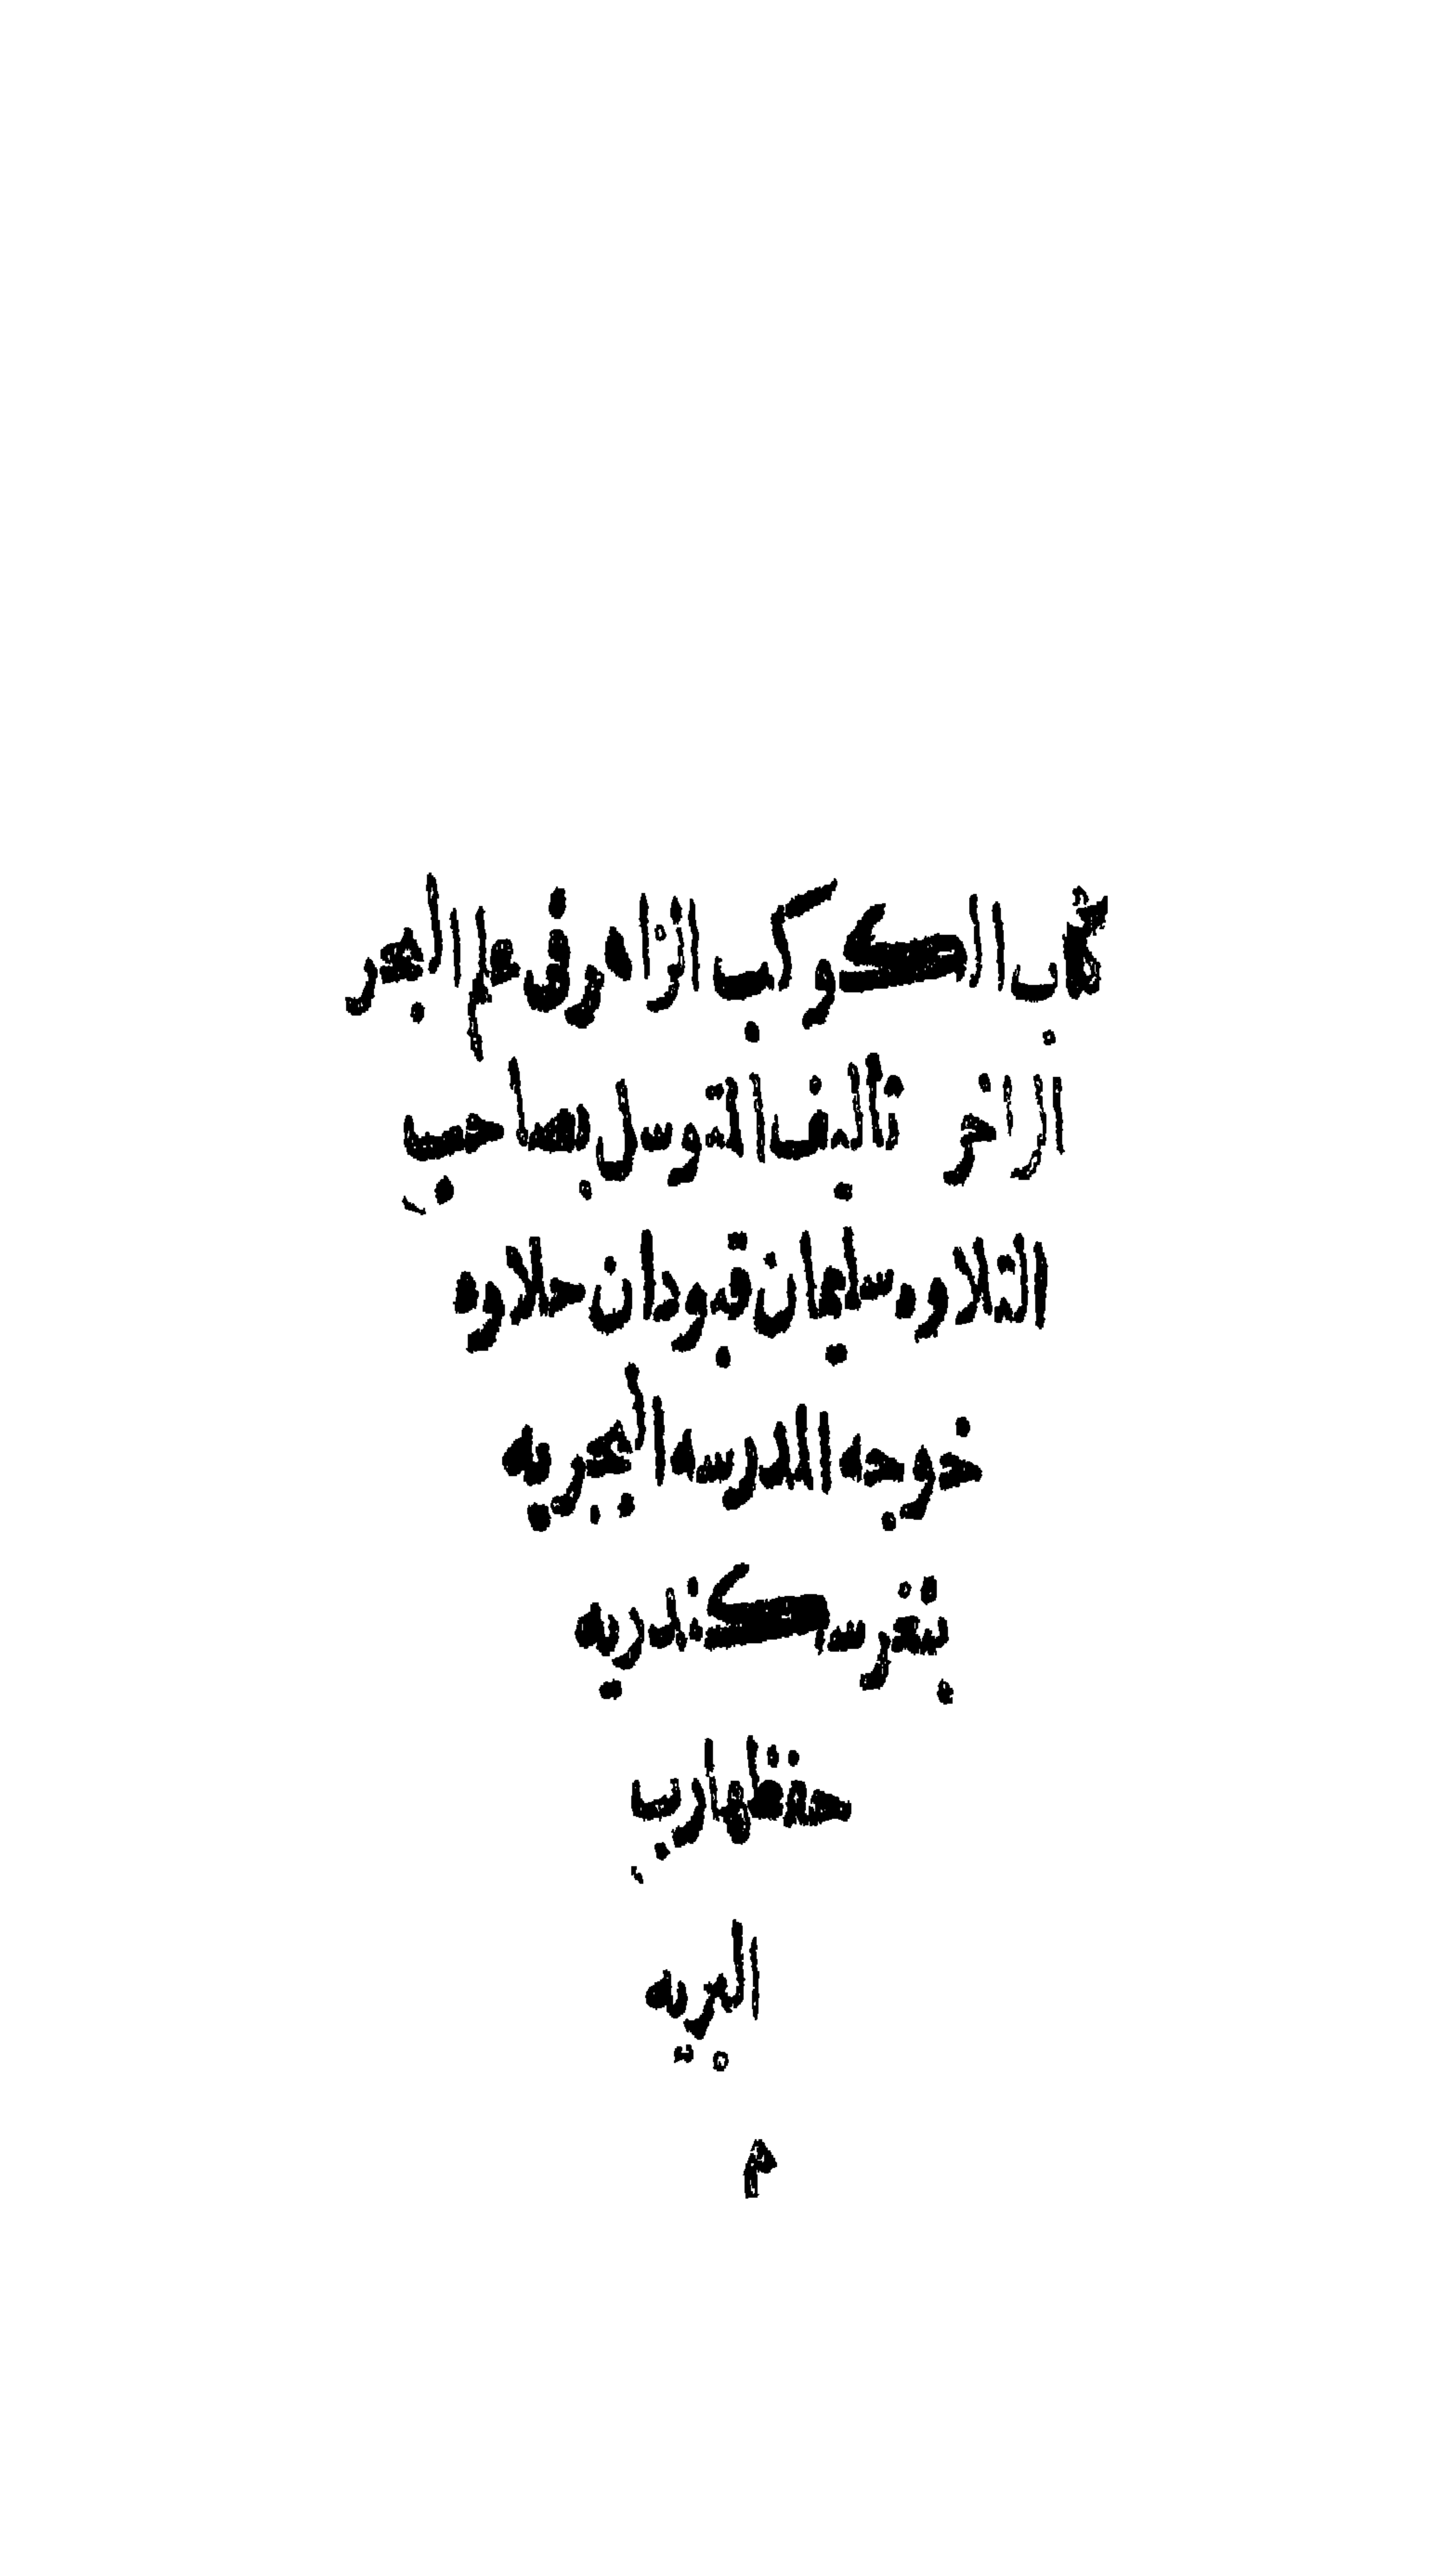 كتاب الكوكب الزاهر فى علم البحر
الزاخر تأليف المتوسل بصاحب
التلاوه سليمان قبودان حلاوه
خوجه المدرسه البحريه
بثغر سكندريه
حفظها رب
البريه
م